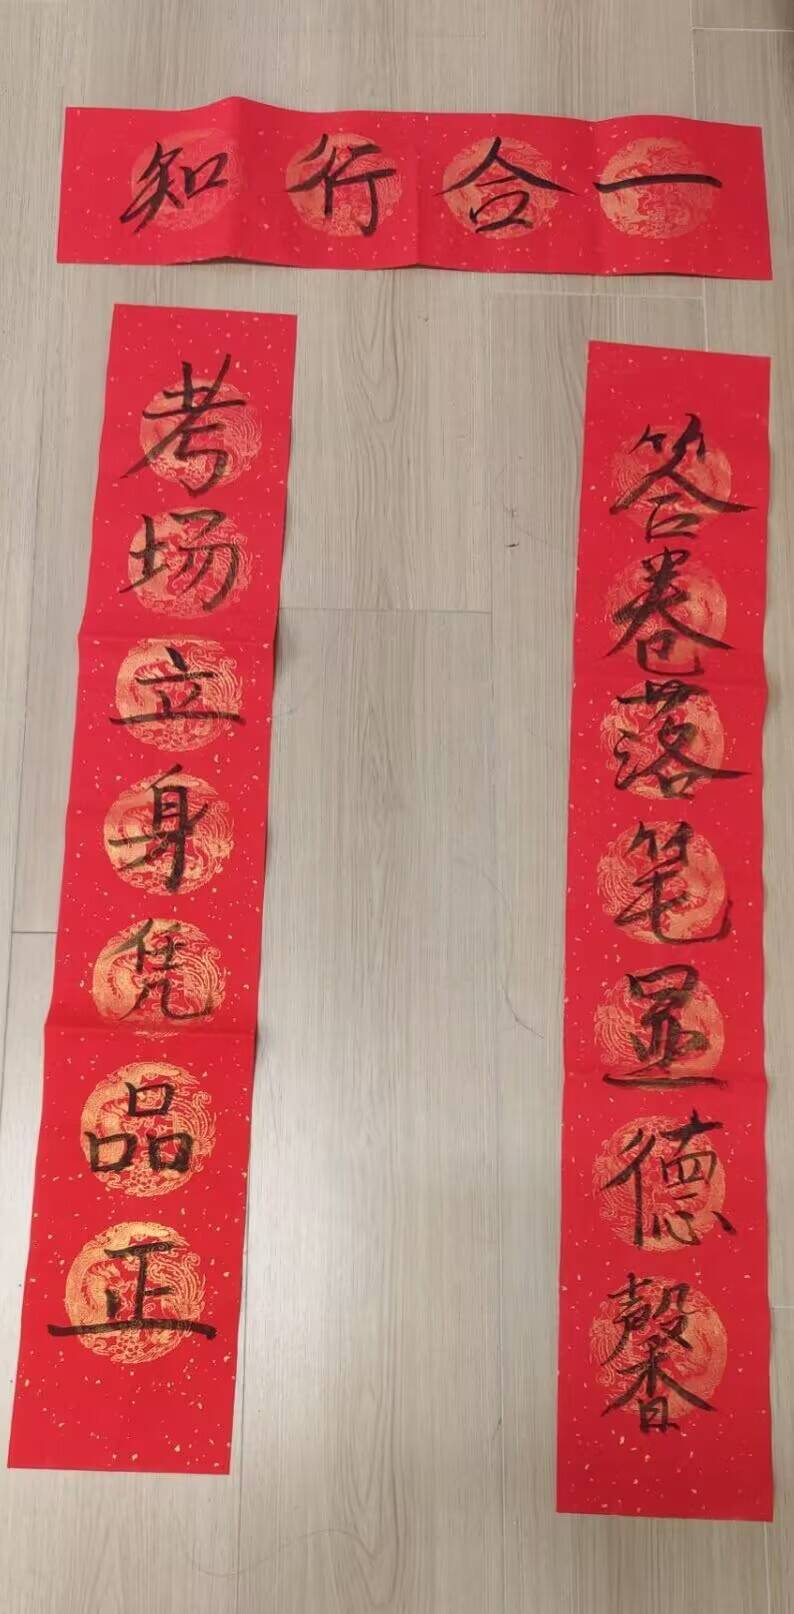 知行合一
考场立身凭品正
答卷落笔显德馨